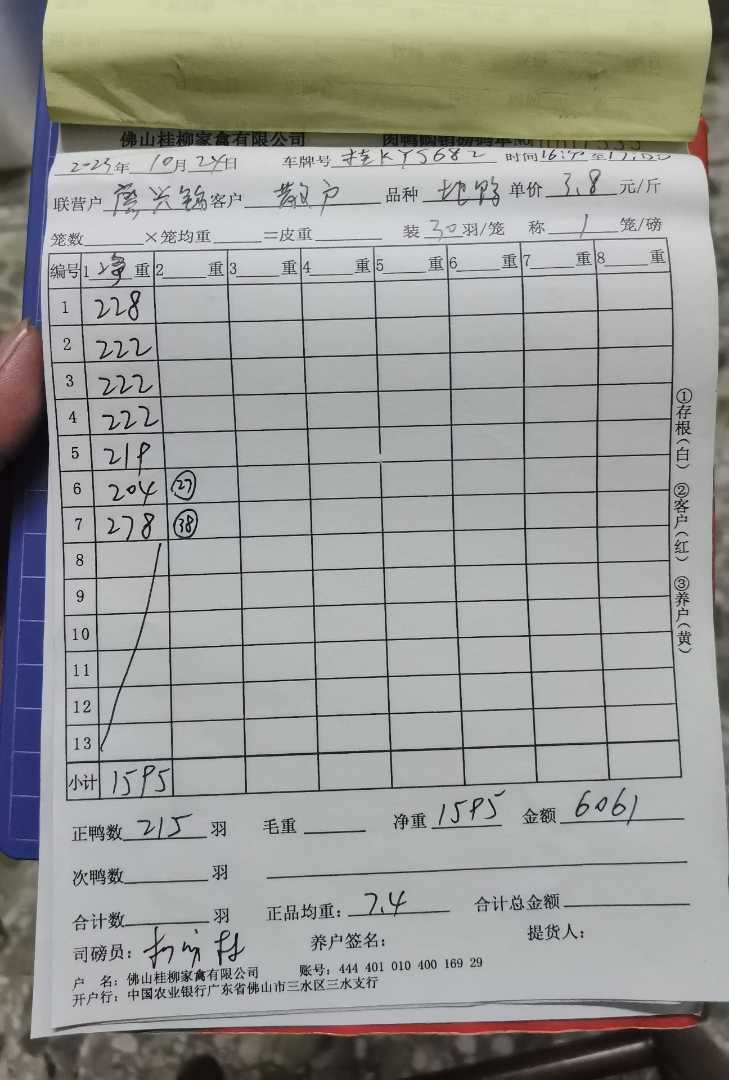 佛山桂柳家禽有限公司
2023年10月24日 车牌号 桂KY5682 时间16:
联营户 客户 散户 品种 单价 3.8 元/斤
笼数 ×笼均重 =皮重 装 30 羽/笼 称 1 笼/磅
编号 1 净 重 2 重 3 重 4 重 5 重 6 重 7 重 8 重
1 228
2 222
3 222
4 222
5 219
6 204 27
7 278 38
8
9
10
11
12
13
小计 1595
①存根(白) ②客户(红) ③养户(黄)
正鸭数 215 羽 毛重 净重 1595 金额 6061
次鸭数 羽
合计数 羽 正品均重: 7.4 合计总金额
司磅员: 养户签名: 提货人:
户 名: 佛山桂柳家禽有限公司 账号: 444 401 010 400 169 29
开户行: 中国农业银行广东省佛山市三水区三水支行